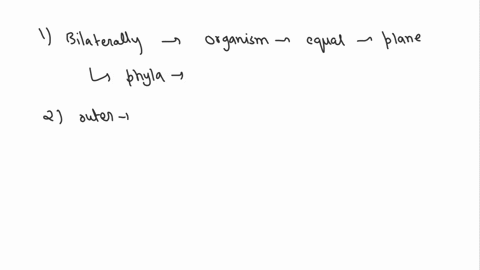 1) Bilaterally → organism → equal → plane
↳ phyla →
2) outer →